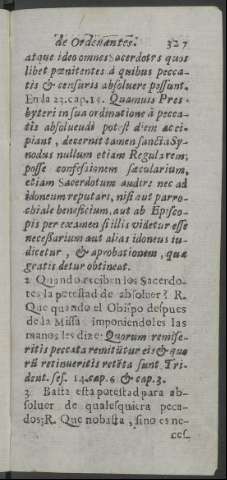 de Ordenantes. 327
atque ideo omnes Sacerdotes quos
libet pœnitentes à quibus pecca-
tis & censuris absoluere possunt.
En la 23. cap. 15. Quamuis Pres-
byteri in sua ordinatione à pecca-
tis absoluendi potestatem acci-
piant, decernit tamen sancta Sy-
nodus nullum etiam Regularem,
posse confessionem sæcularium,
etiam Sacerdotum audire nec ad
idoneum reputari, nisi aut parro-
chiale beneficium, aut ab Episco-
pis per examen si illis videtur esse
necessarium aut alias idoneus iu-
dicetur, & aprobationem, quæ
gratis detur obtineat.
2 Quando reciben los Sacerdo-
tes la potestad de absoluer? R.
Que quando el Obispo despues
de la Missa, imponiendoles las
manos les dize: Quorum remise-
ritis peccata remitūtur eis & quo
rū retinueritis retēta sunt, Tri-
dent. ses. 14. cap. 6 & cap. 3.
3. Basta esta potestad para ab-
soluer de qualesquiera peca-
dos; R. Que no basta, sino es ne-
ces-